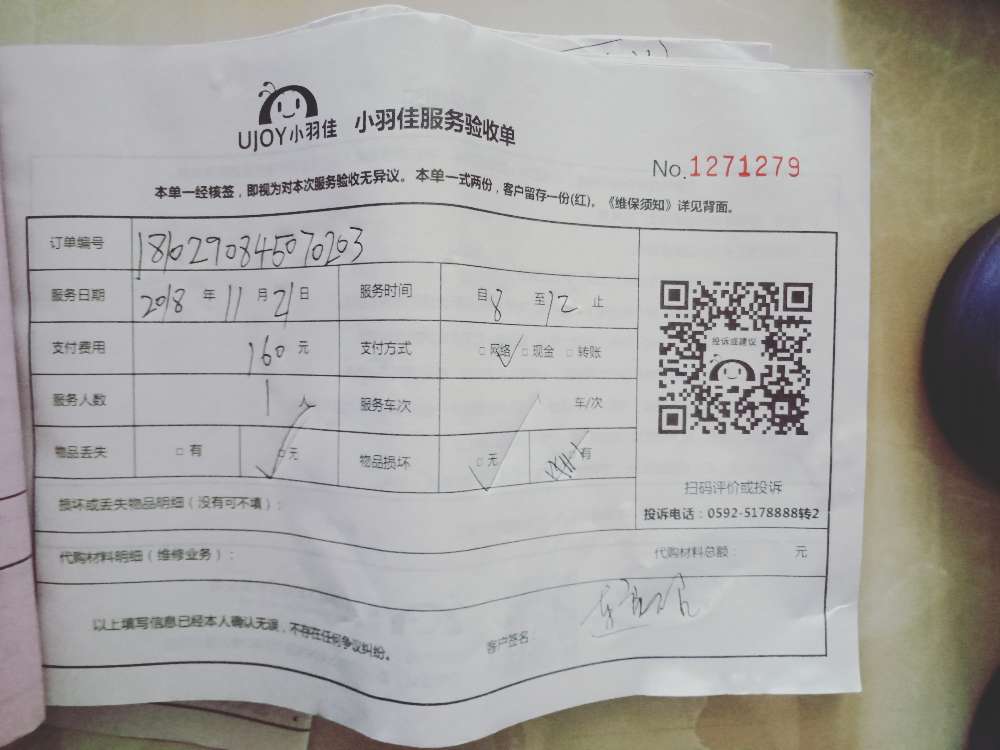 UJOY小羽佳 小羽佳服务验收单
No.1271279
本单一经核签，即视为对本次服务验收无异议。本单一式两份，客户留存一份(红)。《维保须知》详见背面。
订单编号 1810290845070203
服务日期 2018 年 11 月 21 日 服务时间 自 8 至 12 止
支付费用 160 元 支付方式 □网络 □现金 □转账
投诉或建议
服务人数 1 人 服务车次 车/次
物品丢失 □有 □无 物品损坏 □无 有
扫码评价或投诉
损坏或丢失物品明细（没有可不填）：
投诉电话：0592-5178888转2
代购材料明细（维修业务）： 代购材料总额： 元
以上填写信息已经本人确认无误，不存在任何争议纠纷。 客户签名：